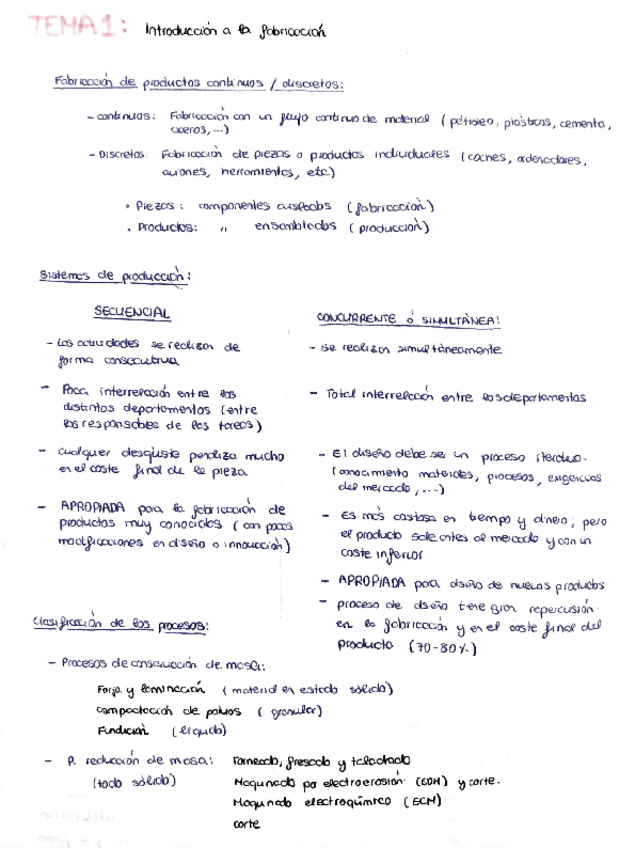 TEMA 1: Introducción a la fabricación
Fabricación de productos continuos / discretos:
- continuos: Fabricación con un flujo continuo de material (petróleo, plásticos, cemento,
aceros, ...)
- Discretos: Fabricación de piezas o productos individuales (coches, ordenadores,
aviones, herramientas, etc)
• Piezas: componentes aislados (fabricación)
• Productos: " ensamblados (producción)
Sistemas de producción:
SECUENCIAL
- Las actividades se realizan de
forma consecutiva
- Poca interrelación entre los
distintos departamentos (entre
los responsables de las tareas)
- cualquier desajuste penaliza mucho
en el coste final de la pieza
- APROPIADA para la fabricación de
productos muy conocidos (con pocas
modificaciones en diseño o innovación)
CONCURRENTE ó SIMULTÁNEA:
- se realizan simultáneamente
- Total interrelación entre los departamentos
- El diseño debe ser un proceso iterativo.
(conocimiento materiales, procesos, exigencias
del mercado, ...)
- Es más costosa en tiempo y dinero, pero
el producto sale antes al mercado y con un
coste inferior
- APROPIADA para diseño de nuevos productos
- proceso de diseño tiene gran repercusión
en la fabricación y en el coste final del
producto (70-80%)
Clasificación de los procesos:
- Procesos de conservación de masa:
Forja y laminación (material en estado sólido)
compactación de polvos (granular)
Fundición (líquido)
- P. reducción de masa: Torneado, fresado y taladrado
(todo sólido) Maquinado por electroerosión (EDM) y corte.
Maquinado electroquímico (ECM)
corte